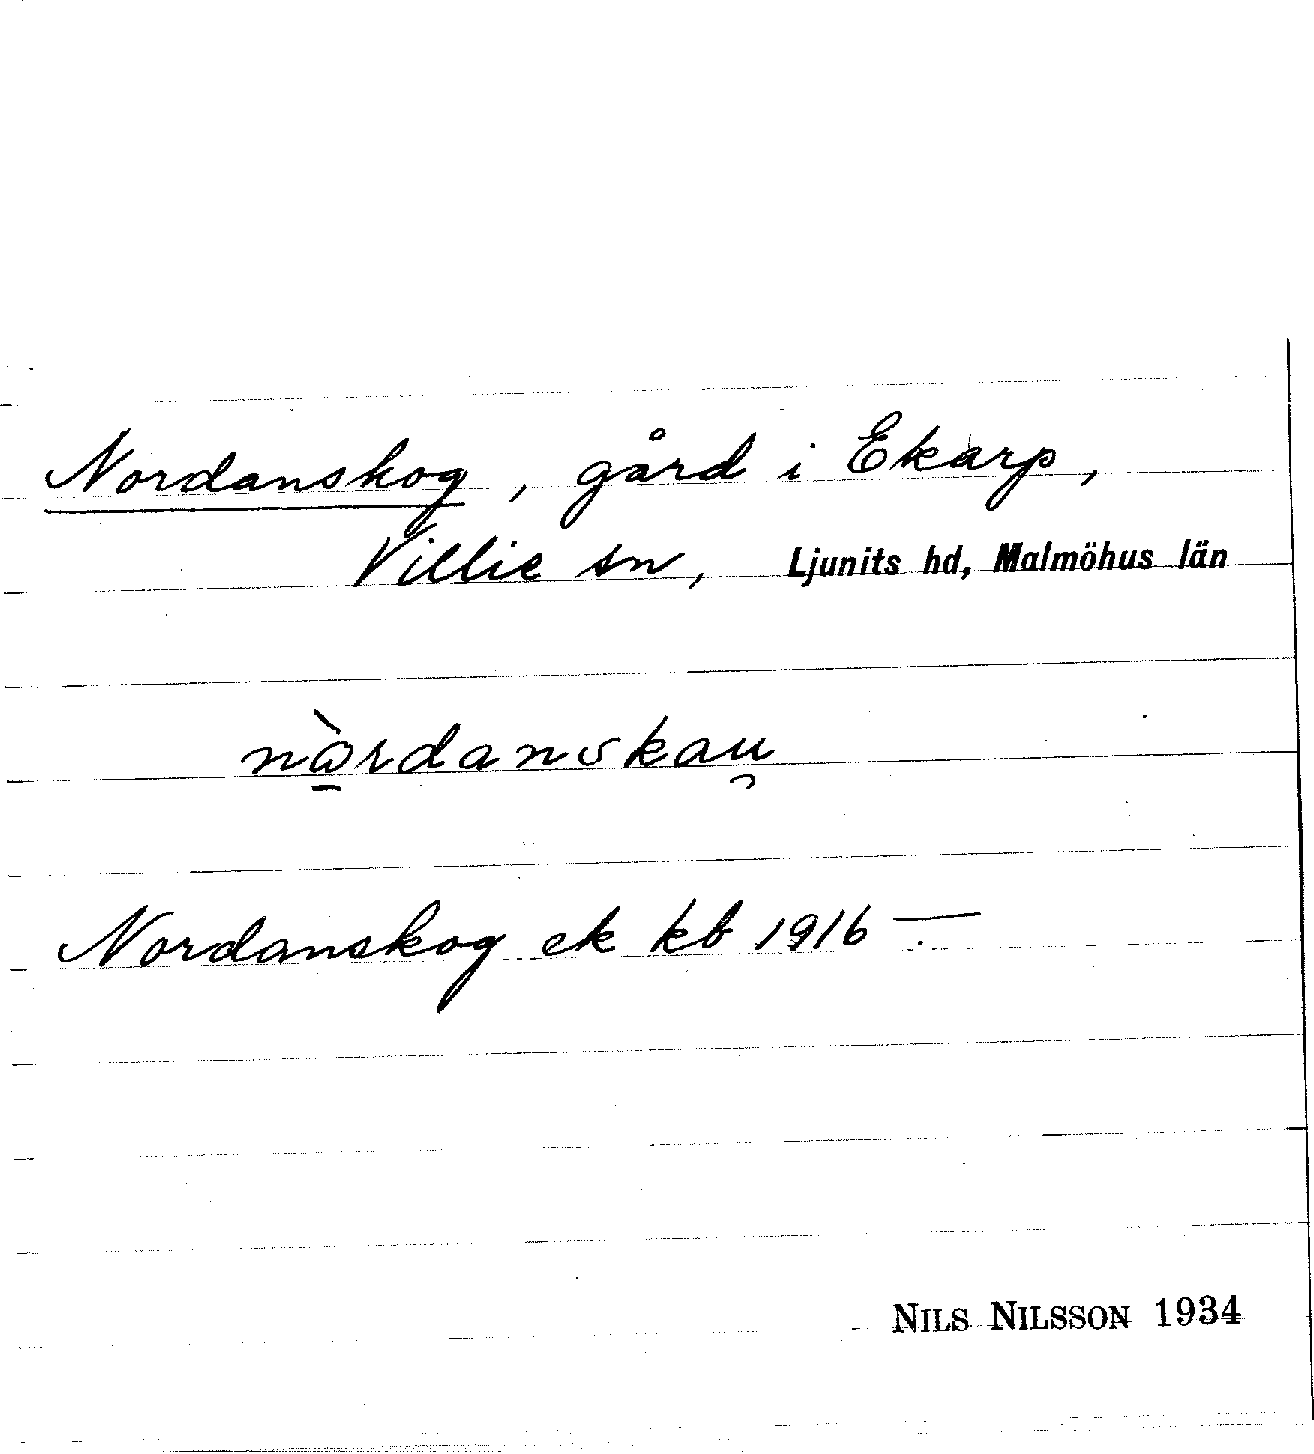 Nordanskog, gård i Ekarp,
Villie sn, Ljunits hd, Malmöhus län
nὼ̱rdanskau̯
Nordanskog ek kb 1916 —
NILS NILSSON 1934